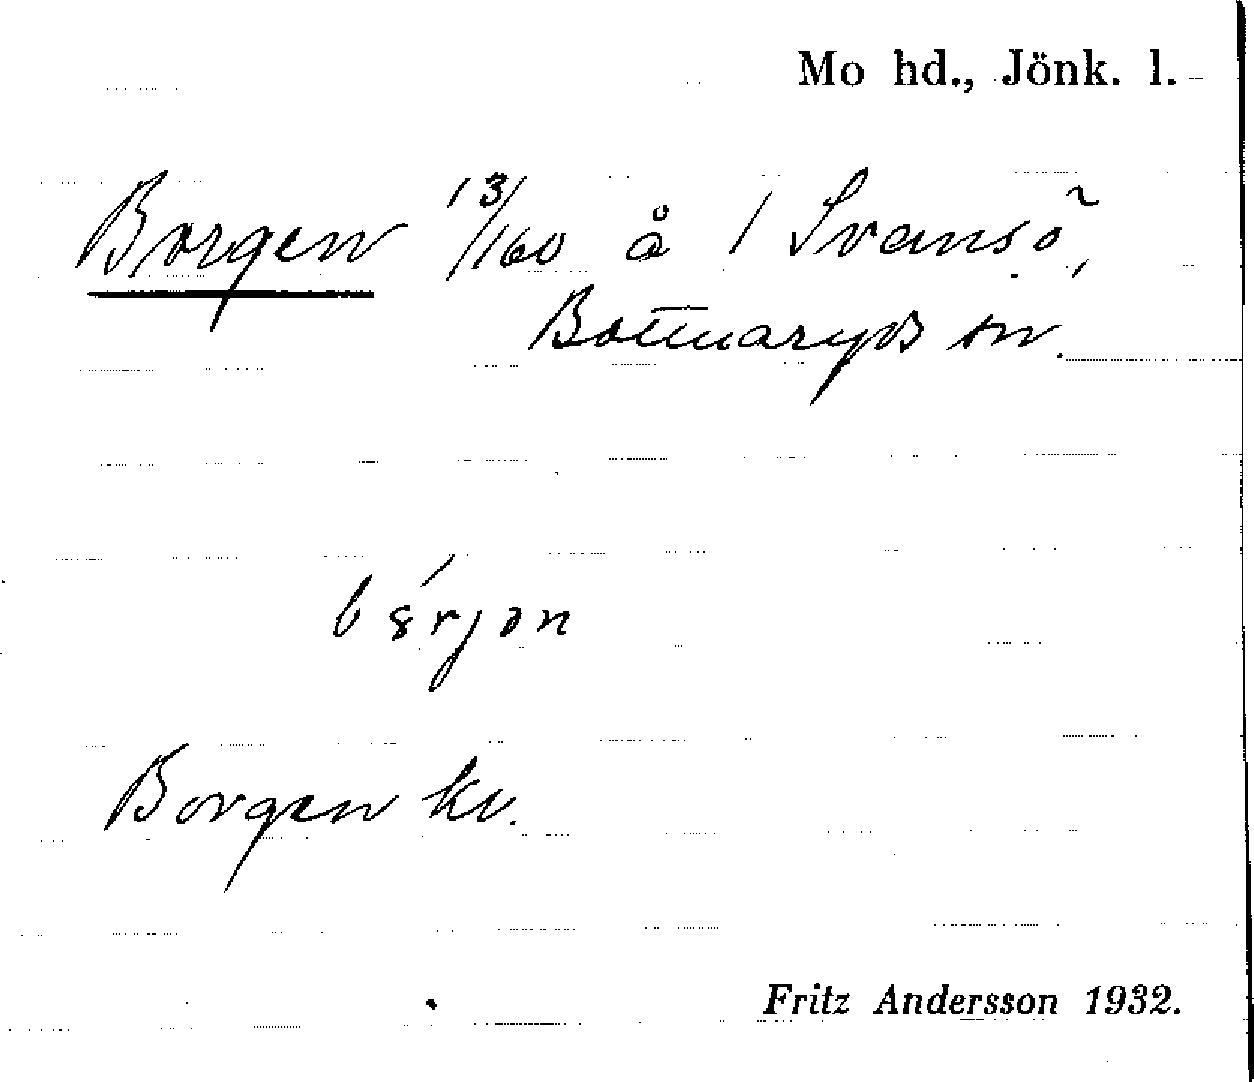 Mo hd., Jönk. l.
Borgen 13/160 å 1 Svansö,
Bottnaryds sn.
Borgen kv.
Fritz Andersson 1932.